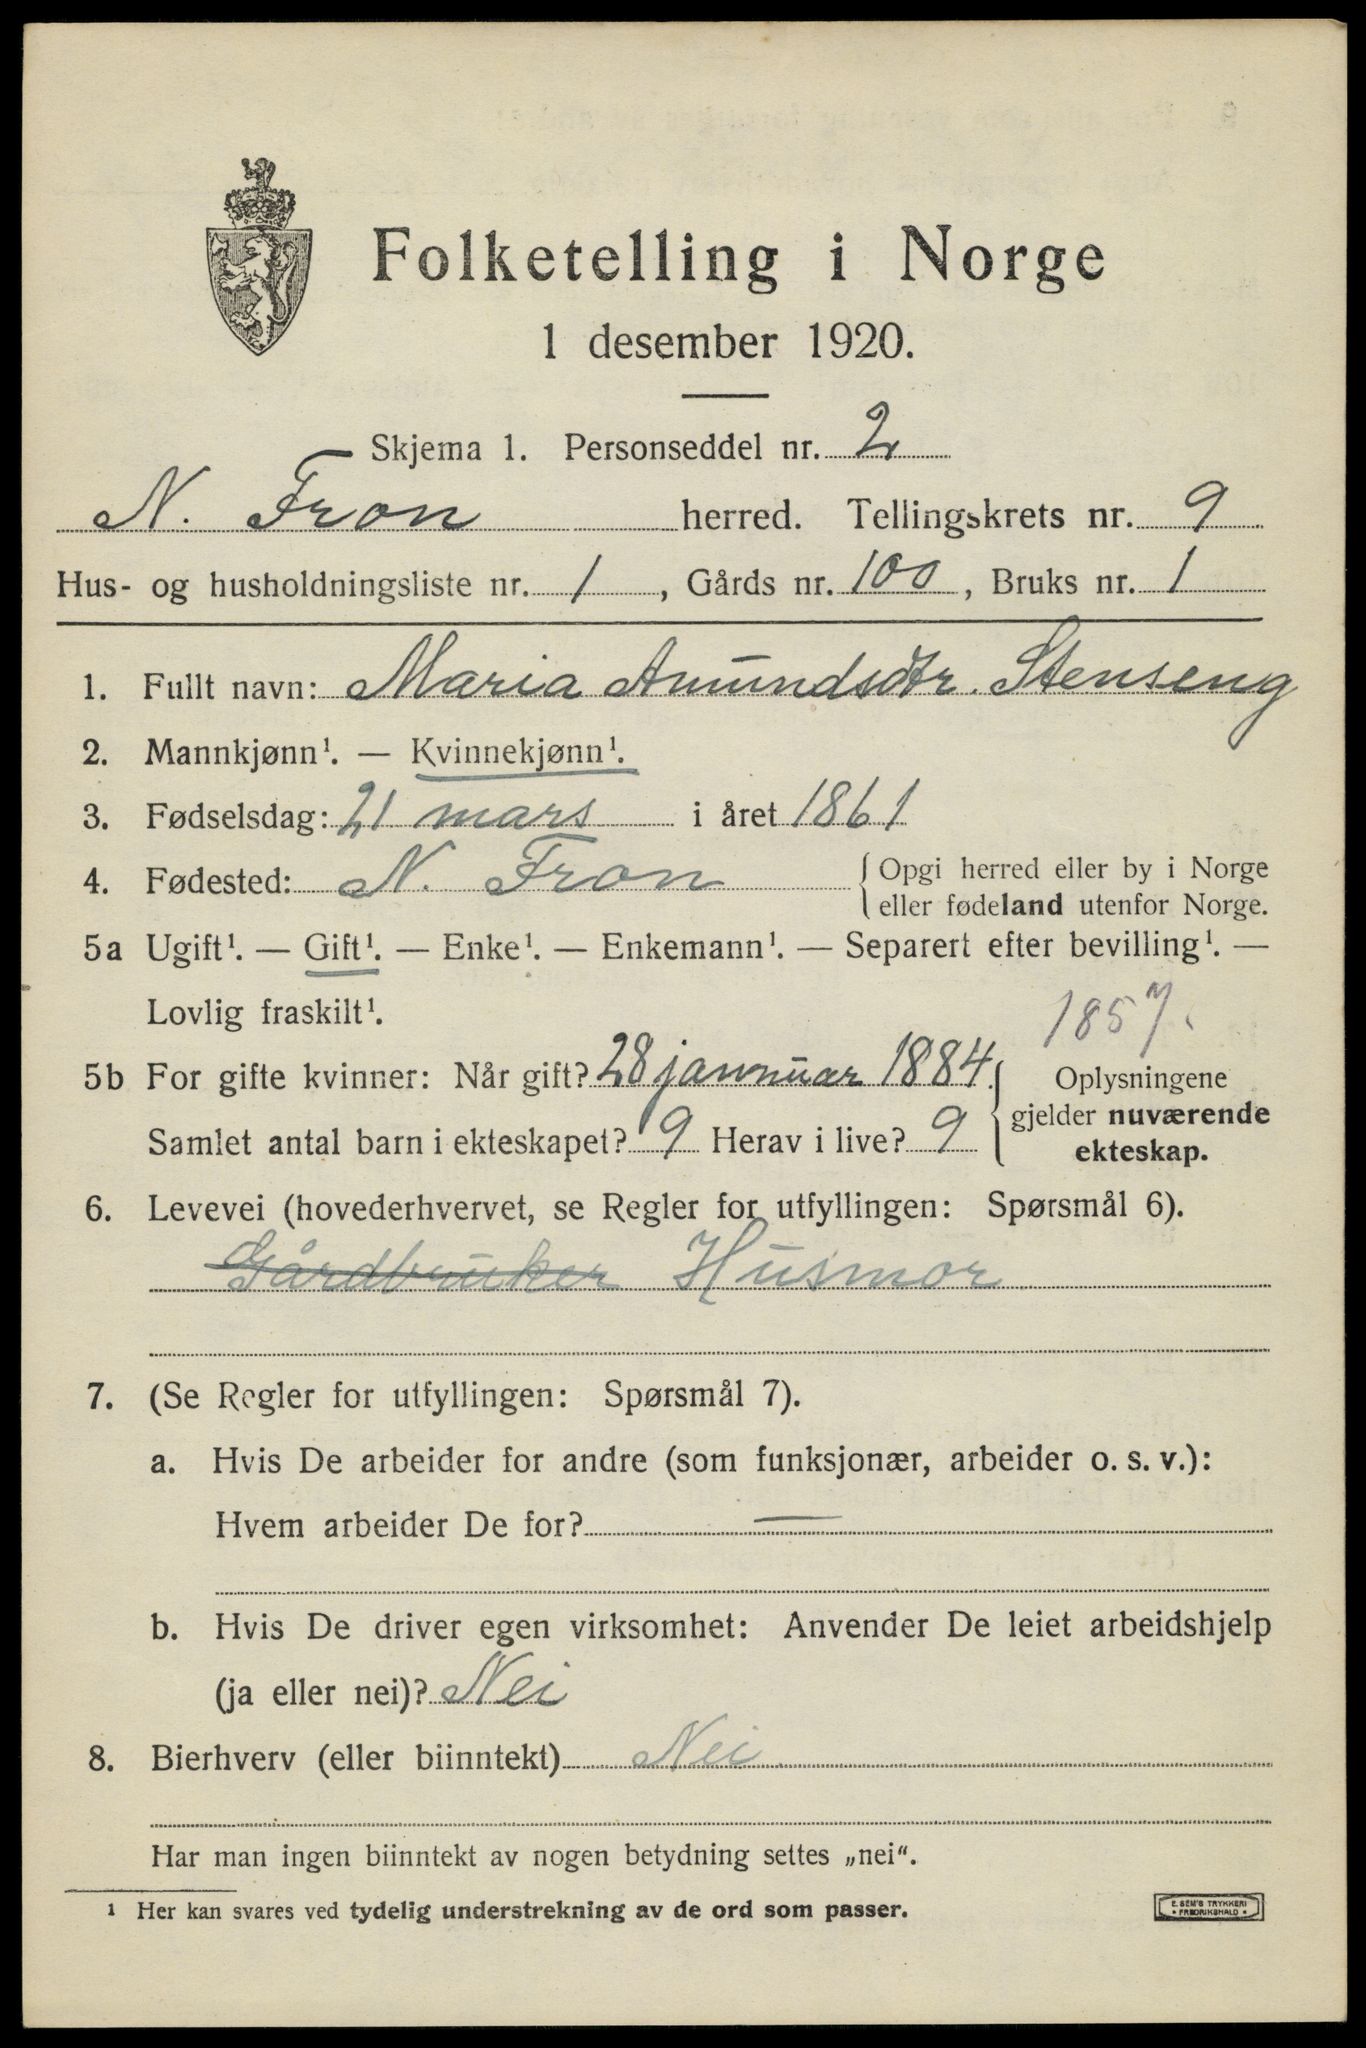 Folketelling i Norge
1 desember 1920.
Skjema 1. Personseddel nr. 2
N. Fron herred. Tellingskrets nr. 9
Hus- og husholdningsliste nr. 1, Gårds nr. 100, Bruks nr. 1
1. Fullt navn: Maria Amundsdtr. Stenseng
2. Mannkjønn¹. — Kvinnekjønn¹.
3. Fødselsdag: 21 mars i året 1861
4. Fødested: N. Fron { Opgi herred eller by i Norge
eller fødeland utenfor Norge.
5a Ugift¹. — Gift¹. — Enke¹. — Enkemann¹. — Separert efter bevilling¹. —
Lovlig fraskilt¹.
1857.
5b For gifte kvinner: Når gift? 28 jannuar 1884. { Oplysningene
gjelder nuværende
Samlet antal barn i ekteskapet? 9 Herav i live? 9
ekteskap.
6. Levevei (hovederhvervet, se Regler for utfyllingen: Spørsmål 6).
Gårdbruker Husmor
7. (Se Regler for utfyllingen: Spørsmål 7).
a. Hvis De arbeider for andre (som funksjonær, arbeider o. s. v.):
Hvem arbeider De for? —
b. Hvis De driver egen virksomhet: Anvender De leiet arbeidshjelp
(ja eller nei)? Nei
8. Bierhverv (eller biinntekt) Nei
Har man ingen biinntekt av nogen betydning settes „nei“.
¹ Her kan svares ved tydelig understrekning av de ord som passer.
E. SEM'S TRYKKERI
• FREDRIKSHALD •